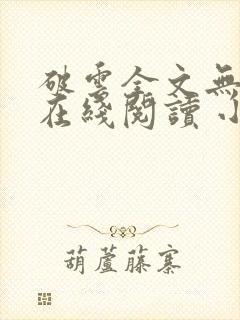 破雲全文無
在綫閱讀小
葫蘆藤寨